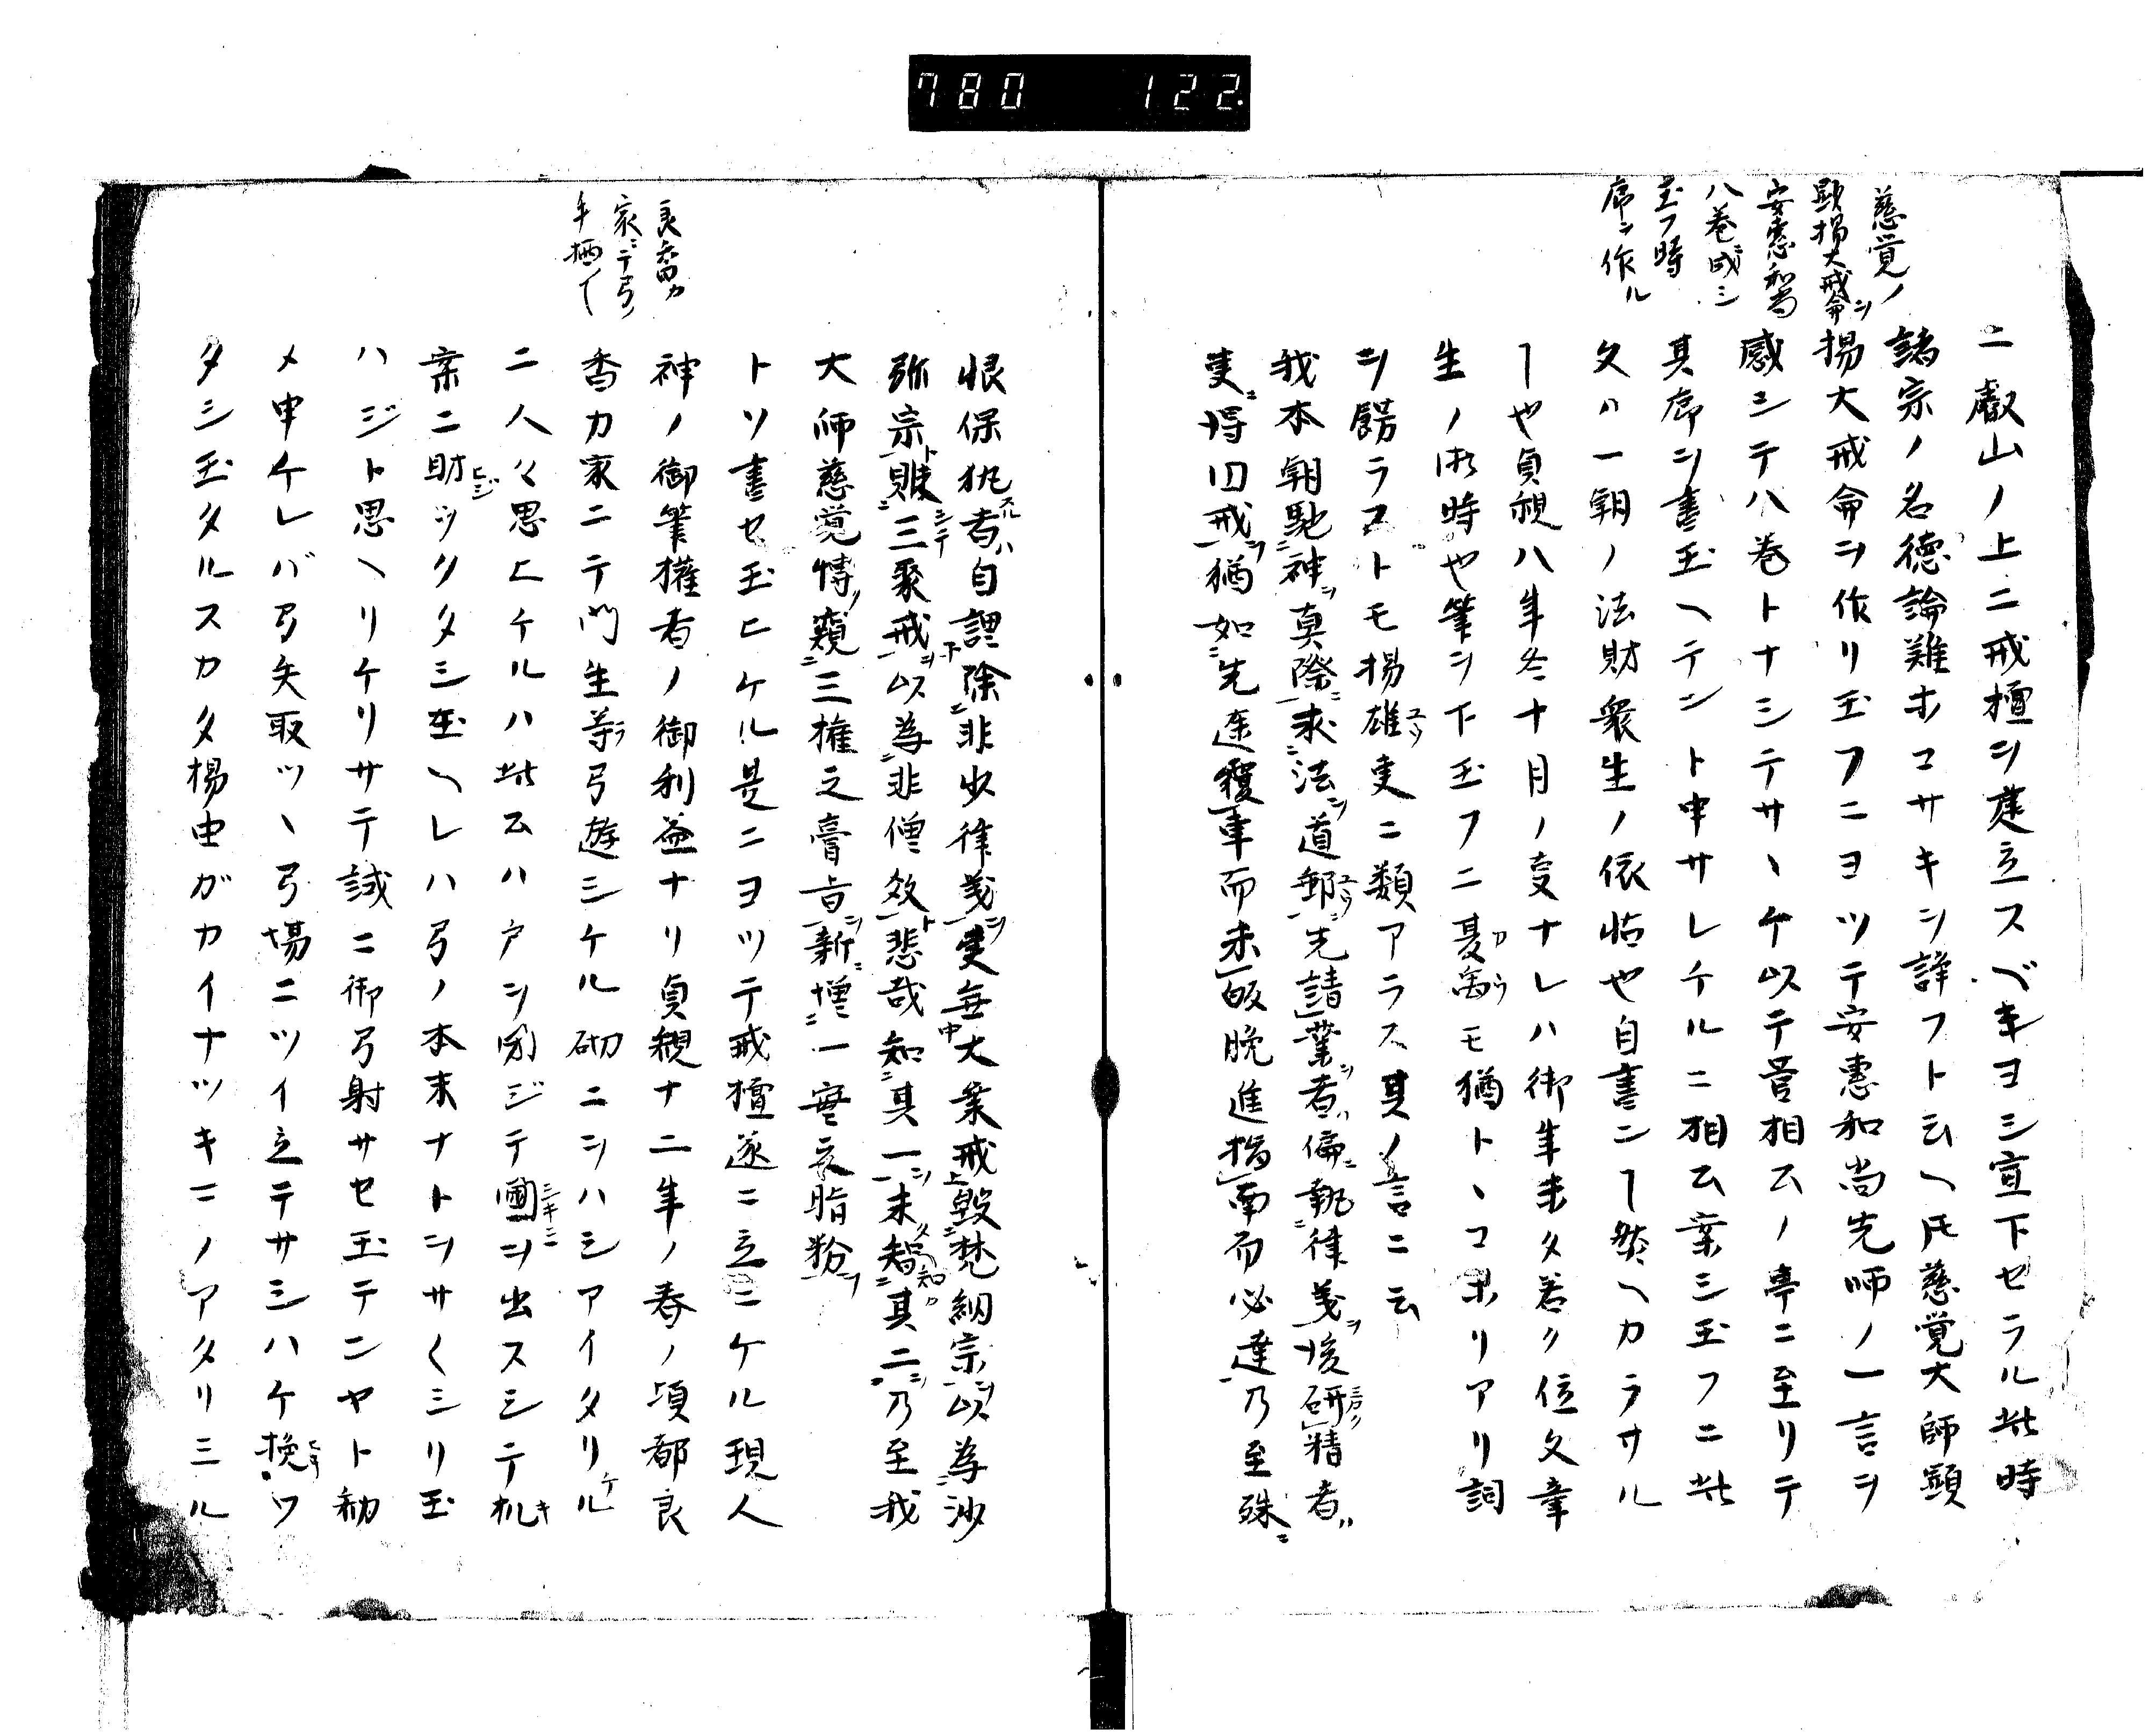 780 122
慈覚ノ
顕揚大戒侖ヲ
安恵和尚
八巻ニ成シ
玉フ時
序ヲ作ル
ニ叡山ノ上ニ戒檀ヲ建立スベキヨシ宣下セラル此時
諸宗ノ名徳論難ホコサキヲ諍フト云ヘ𪜈慈覚大師顕
揚大戒侖ヲ作リ玉フニヨツテ安恵和尚先師ノ一言ヲ
感シテ八巻トナシテサヽケ以テ菅相厶ノ亭ニ至リテ
其序ヲ書玉ヘテント申サレケルニ相厶案シ玉フニ此
文ハ一朝ノ法財衆生ノ依怙也自書ニヿ然ヘカラサル
ヿ也貞観八年冬十月ノ叓ナレハ御年未タ若ク位文章
生ノ此時也筆ヲ下玉フニ夏禹モ猶トヽコホリアリ詞
ヲ餝ラストモ揚雄叓ニ類アラス其ノ言ニ云
我本朝馳神真際求法道郵先請業者偏執律義後研精者
叓得旧戒猶如先達覆車而未皈晩進指南而必達乃至殊
良香カ
家ニテ弓
手柄ノヿ
恨保執者自謂除非少律義更無大業戒毀梵網宗以為沙
弥宗賤三聚戒以為非僧效悲哉知其一未知其二乃至我
大師慈覚情窺三権之膏旨新増一実之脂粉
トソ書セ玉ヒケル是ニヨツテ戒檀遂ニ立ニケル現人
神ノ御筆権者ノ御利益ナリ貞観ナ二年ノ春ノ頃都良
香カ家ニテ門生等弓遊シケル砌ニヲハシアイタリケル
ニ人々思ヒケルハ此厶ハ戸ヲ閉ジテ圃ヲ出スシテ机
案ニ肘ツクタシ玉ヘレハ弓ノ本末ナトヲサ〳〵シリ玉
ハジト思ヘリケリサテ誠ニ御弓射サセ玉テンヤト勧
メ申ケレバ弓矢取ツヽ弓場ニツイ立テサシハケ挽ワ
タシ玉タルスカタ揚由ガカイナツキニノアタリミル